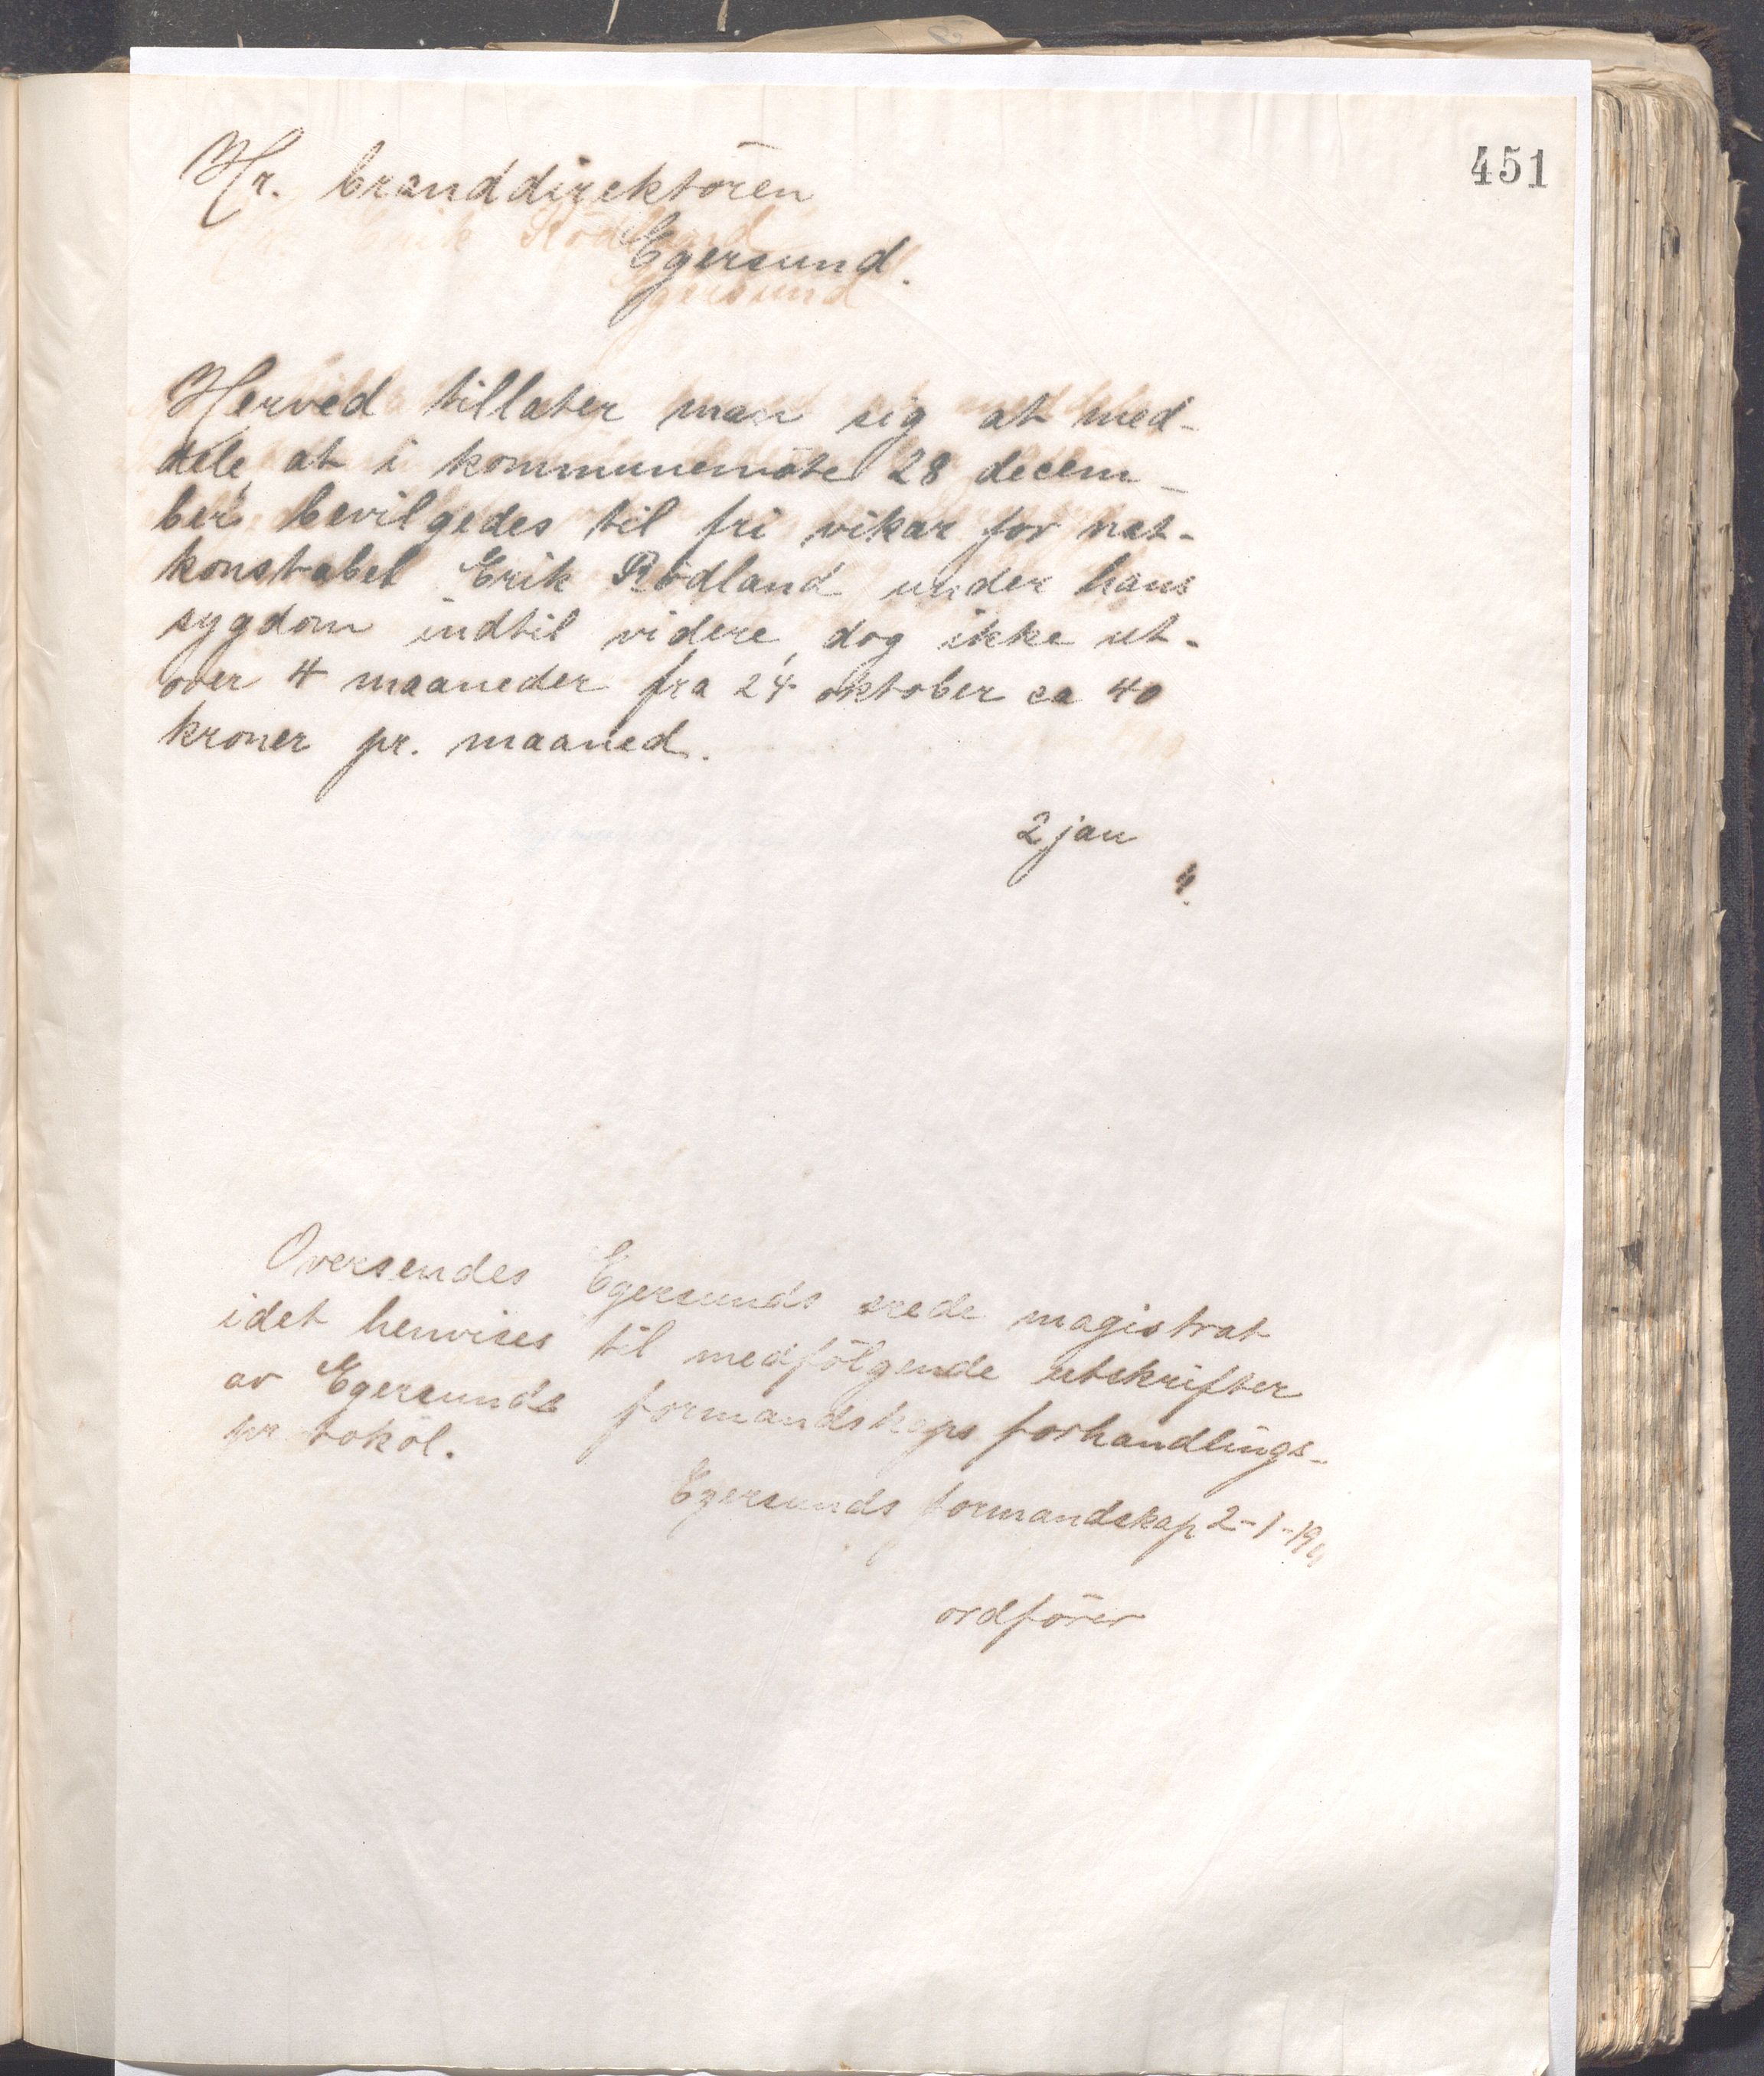 451
Hr. branddirektören
Egersund.
Herved tillater man sig at med-
dele, at i kommunemöte 28 decem-
ber bevilgedes til fri vikar for nat-
konstabel Erik Rödland under hans
sygdom indtil videre, dog ikke ut-
over 4 maaneder fra 24 oktober ca 40
kroner pr. maaned.
2 jan
Oversendes Egersunds ærede magistrat
idet henvises til medfölgende utskrifter
av Egersunds formandskaps forhandlings-
protokol.
Egersunds formandskap 2-1-19
ordförer